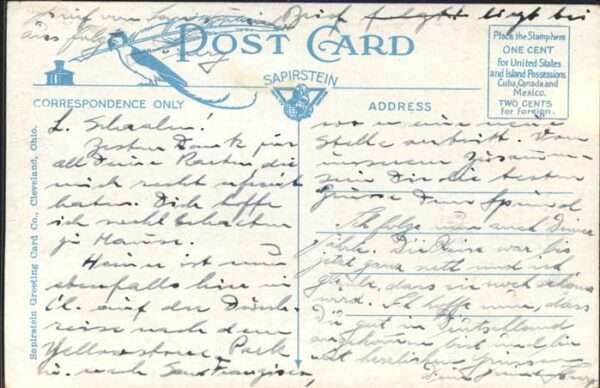 Brief folgt liegt bei
aus folgt
POST CARD
SAPIRSTEIN
Place the Stamp here
ONE CENT
for United States
and Island Possessions
Cuba, Canada and
Mexico.
TWO CENTS
for Foreign.
CORRESPONDENCE ONLY
ADDRESS
Sapirstein Greeting Card Co., Cleveland, Ohio.
L.
Besten Dank für
all Deine Karten, die
mich recht erfreut
haben. Dich hoffe
ich recht
zu Hause.
Heiner ist nun
ebenfalls hier in
C. auf der Durch-
reise nach dem
Yellowstone Park
u. nach San Francisco,
wo er eine
Stelle vertritt. Von
unserem Zusammen-
sein Dir die besten
Grüsse Dein
Ich folge nun auch Deiner
Die Reise war bis
jetzt ganz nett und ich
glaube, dass sie noch schöner
wird. Ich hoffe nun, dass
Du gut in Deutschland
angekommen bist und bin
mit herzlichen Grüssen
Dein